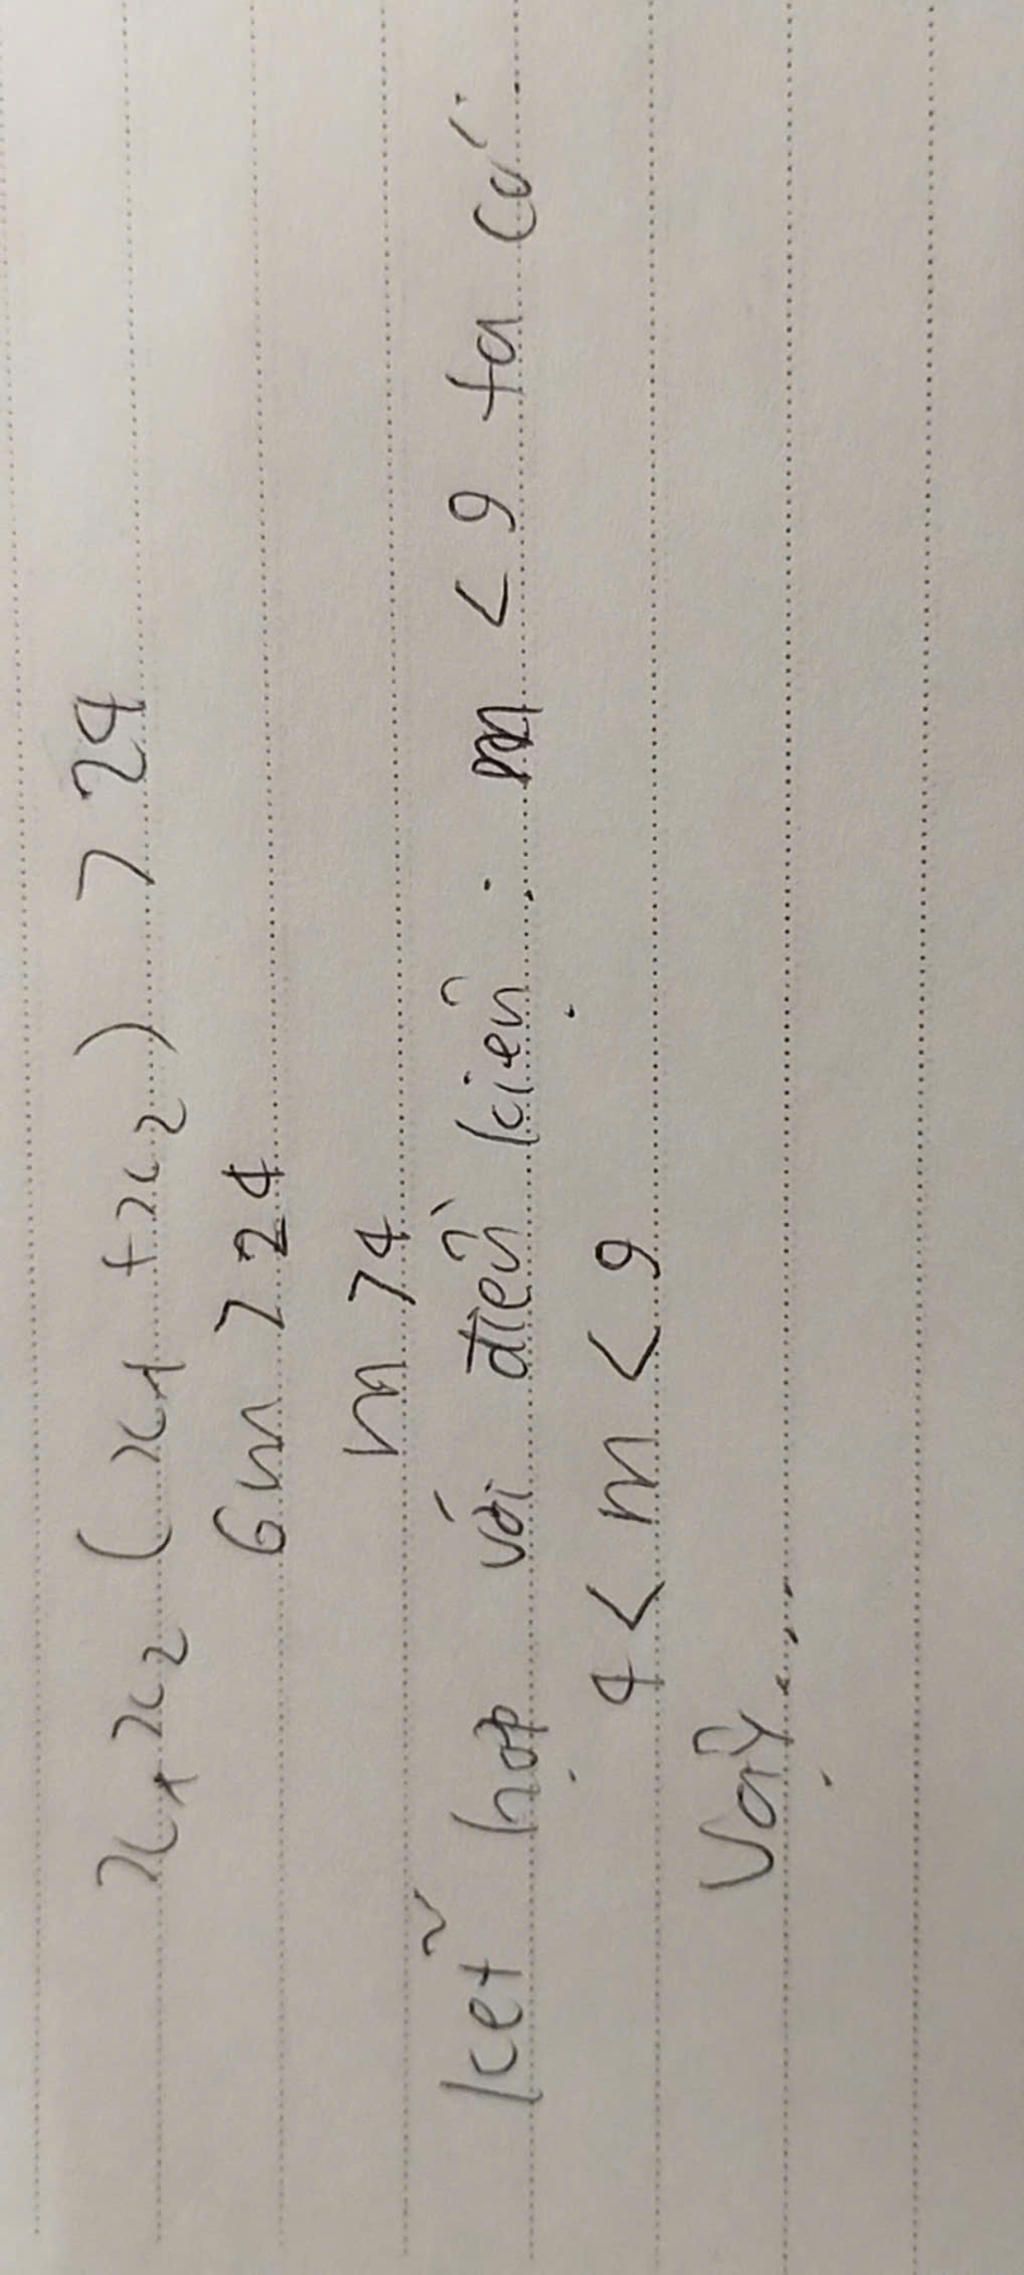 x₁x₂ (x₁ + x₂) > 24
6m > 24
m > 4
Kết hợp với điền kiện : m < 9 ta có :
4 < m < 9
Vậy ...